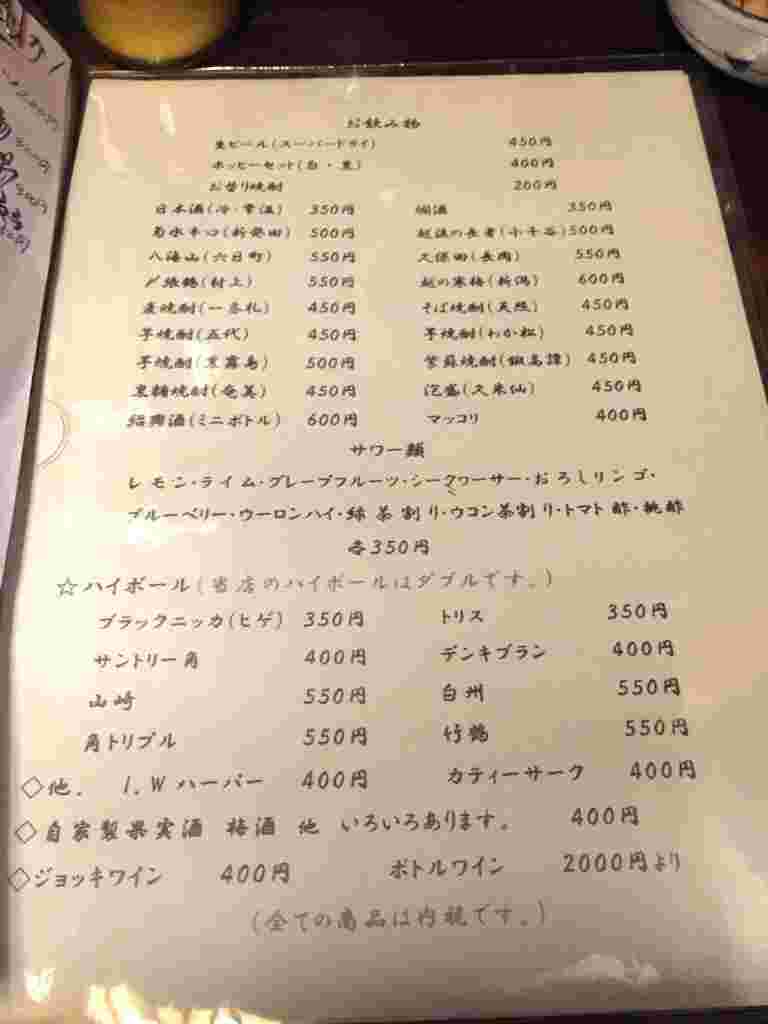 お飲み物
生ビール(スーパードライ) 450円
ホッピーセット(白・黒) 400円
お替り焼酎 200円
日本酒(冷・常温) 350円 燗酒 350円
菊水辛口(新発田) 500円 越後の長者(小千谷) 500円
八海山(六日町) 550円 久保田(長岡) 550円
〆張鶴(村上) 550円 越の寒梅(新潟) 600円
麦焼酎(一番札) 450円 そば焼酎(天照) 450円
芋焼酎(五代) 450円 芋焼酎(わか松) 450円
芋焼酎(黒霧島) 500円 紫蘇焼酎(鍛高譚) 450円
黒糖焼酎(奄美) 450円 泡盛(久米仙) 450円
紹興酒(ミニボトル) 600円 マッコリ 400円
サワー類
レモン・ライム・グレープフルーツ・シークワーサー・おろしリンゴ・
ブルーベリー・ウーロンハイ・緑茶割り・ウコン茶割り・トマト酢・桃酢
各350円
☆ハイボール(当店のハイボールはダブルです。)
ブラックニッカ(ヒゲ) 350円 トリス 350円
サントリー角 400円 デンキブラン 400円
山崎 550円 白州 550円
角トリプル 550円 竹鶴 550円
◇他. I.W ハーパー 400円 カティーサーク 400円
◇自家製果実酒 梅酒 他 いろいろあります。 400円
◇ジョッキワイン 400円 ボトルワイン 2000円より
(全ての商品は内税です。)